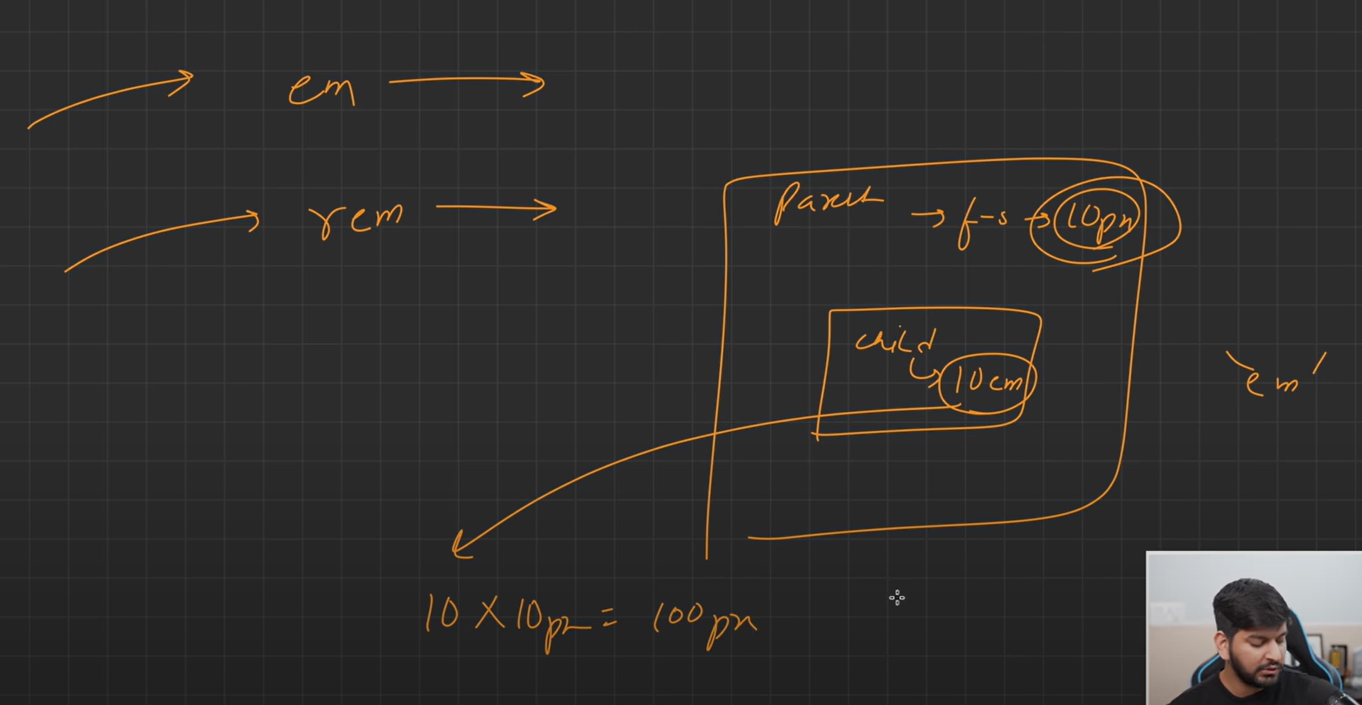 em
rem
Parent → f-s → 10px
child
10em
'em'
10 × 10px = 100px